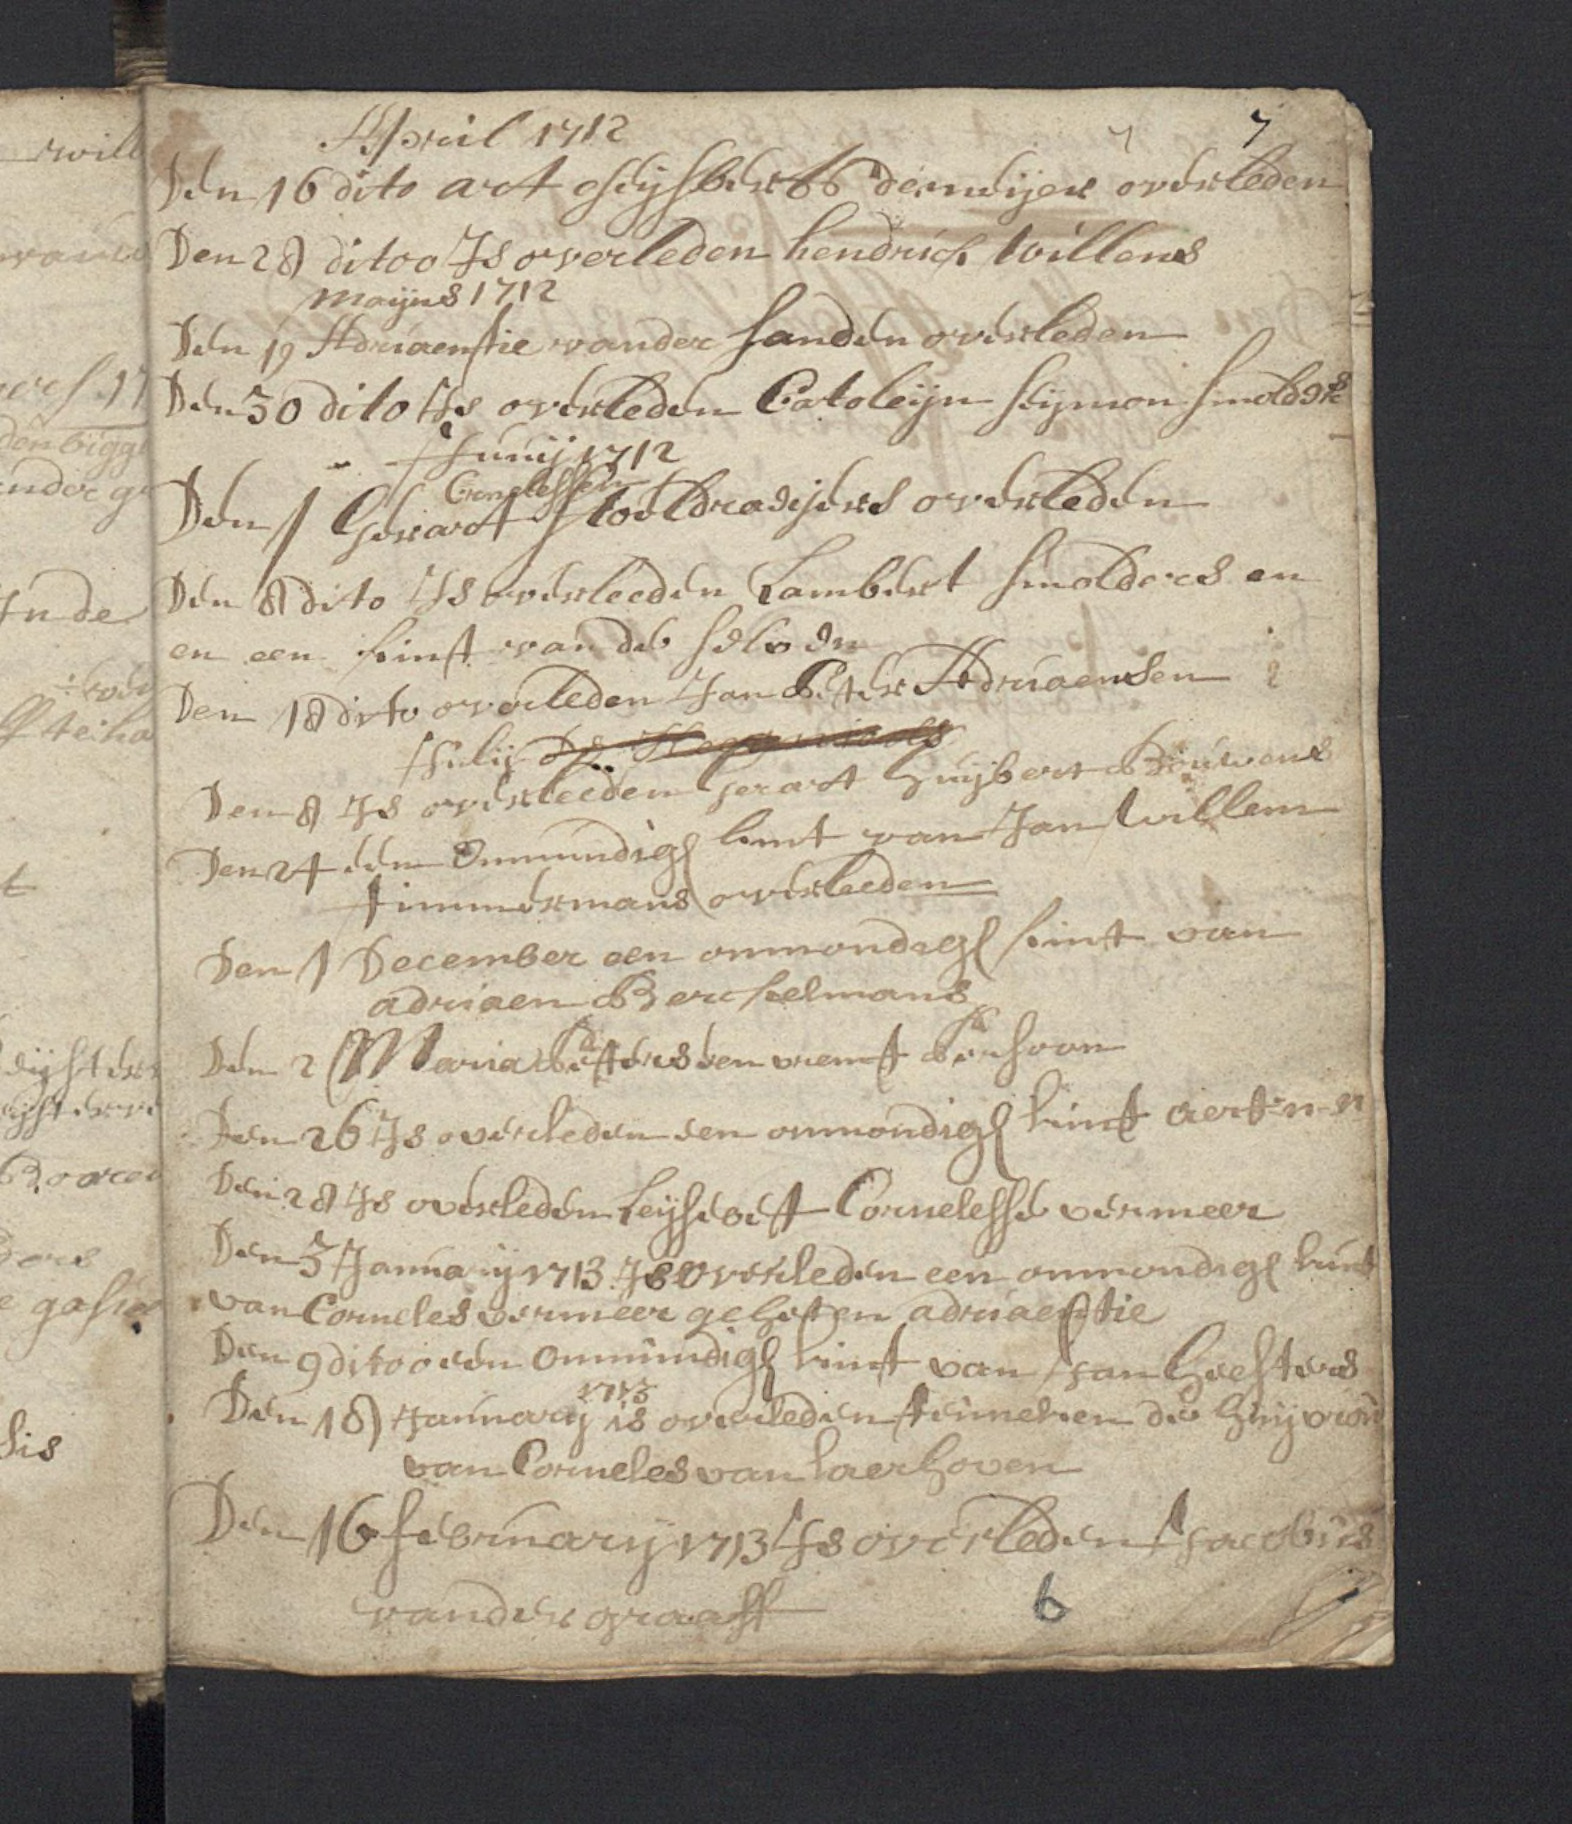 April 1712
7 7
Den 16 dito art gheijsberts overleden
Den 28 ditoo Is overleden hendrick Willens
Maijus 1712
Den 19 Adriaenstie vander sanden overleden
Den 30 dito Is overleden Catoleijn sijmon smolders
Junij 1712
Cornelessen
Den 1 Gerart stoeldraeijers overleden
Den 8 dito Is overleeden Lambert smolders en
en een kint van de selven
Den 18 dito overleden Jan Peter Adriaensen
Julij
Den 8 Is overleeden gerart huijbert Bouwens
Den 24 een Onmundigh kint van Jan Willem
timmermans overleeden
Den 1 December een onmondigh kint van
adriaen Berckelmans
Den 2 Maria Peters een vremt Persoon
Den 26 Is overleden een onmondigh kint aert n-n
Den 28 Is overleden Leijsebett Cornelesse vermeer
Den 3 January 1713 Is Overleden een onmondigh kint
van Corneles vermeer geheten adriaenstie
Den 9 ditoo een Onmundigh kint van Jan heesters
1713
Den 18 January is overleden den de huijvrou
van Corneles van laerhoven
Den 16 februarij 1713 Is overleden Jacobus
vander graaff
6
will
Inde
t
his